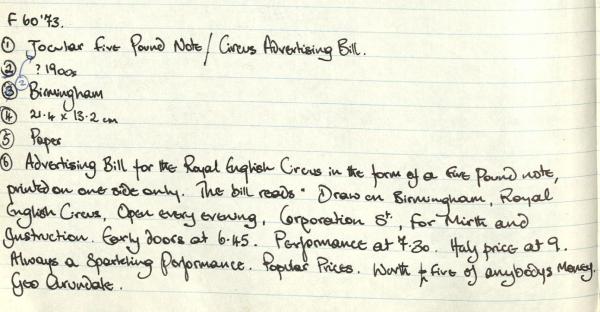 F60'73.
① Jocular Five Pound Note / Circus Advertising Bill.
② ? 1900s
③ Birmingham
④ 21.4 x 13.2 cm
⑤ Paper
⑥ Advertising Bill for the Royal English Circus in the form of a five Pound note,
printed on one side only. The bill reads " Draw on Birmingham, Royal
English Circus, Open every evening, Corporation St., For Mirth and
Instruction. Early doors at 6.45. Performance at 7.30. Half price at 9.
Always a Sparkling Performance. Popular Prices. Worth five of anybodys Money.
Geo Arundale.